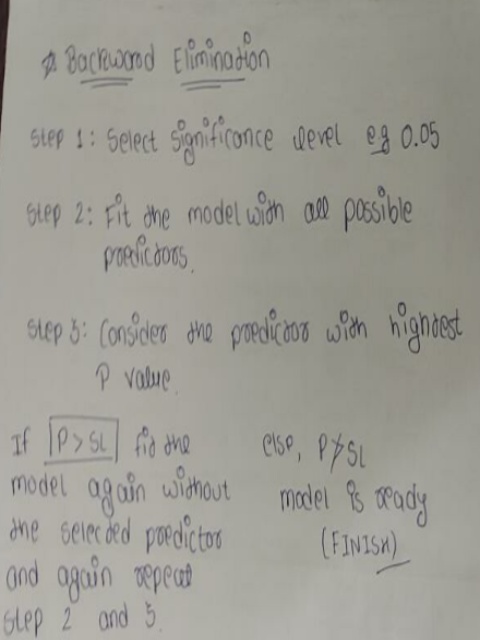 * Backward Elimination
Step 1: Select Significance level eg 0.05
Step 2: Fit the model with all possible
predictors.
Step 3: Consider the predictor with highest
P value.
If P > SL fit the
model again without
the selected predictor
and again repeat
Step 2 and 3.
else, P ≯ SL
model is ready
(FINISH)